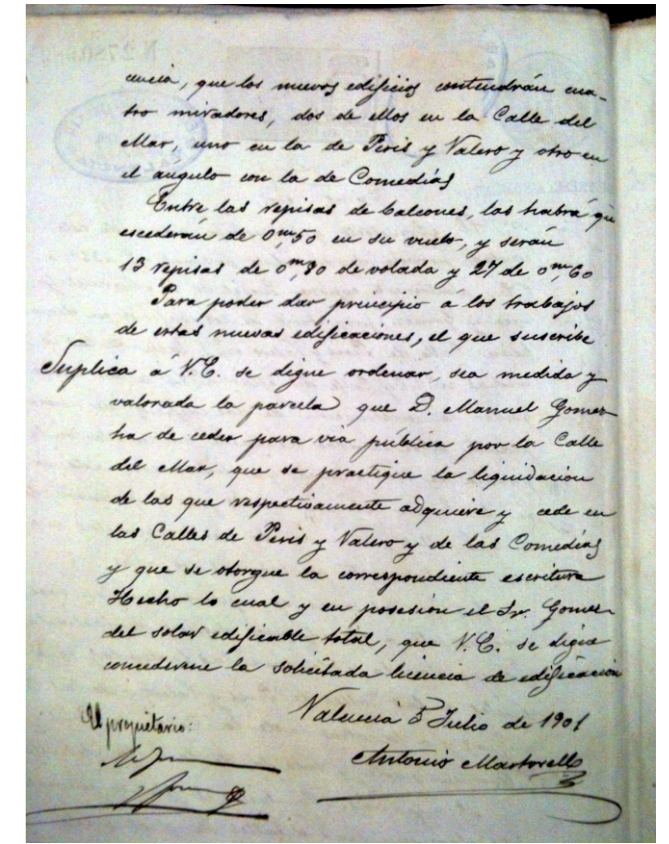 cucia, que los nuevos edificios contendrán cua-
tro miradores, dos de ellos en la Calle del
Mar, uno en la de Peris y Valero y otro en
el ángulo con la de Comedias
Entre las repisas de balcones, las habrá que
escederán de 0m,50 en su vuelo, y serán
13 repisas de 0m,80 de volada y 27 de 0m,60
Para poder dar principio á los trabajos
de estas nuevas edificaciones, el que suscribe
Suplica á V.E. se digne ordenar, sea medida y
valorada la parcela que D. Manuel Gomez
ha de ceder para via pública por la Calle
del Mar, que se practique la liquidacion
de las que respectivamente adquiere y cede en
las Calles de Peris y Valero y de las Comedias
y que se otorgue la correspondiente escritura
Hecho lo cual y en posesión el Sr. Gomez
del solar edificable total, que V.E. se digne
concederme la solicitada licencia de edificación
Valencia 5 Julio de 1901
El propietario:
Antonio Martorell